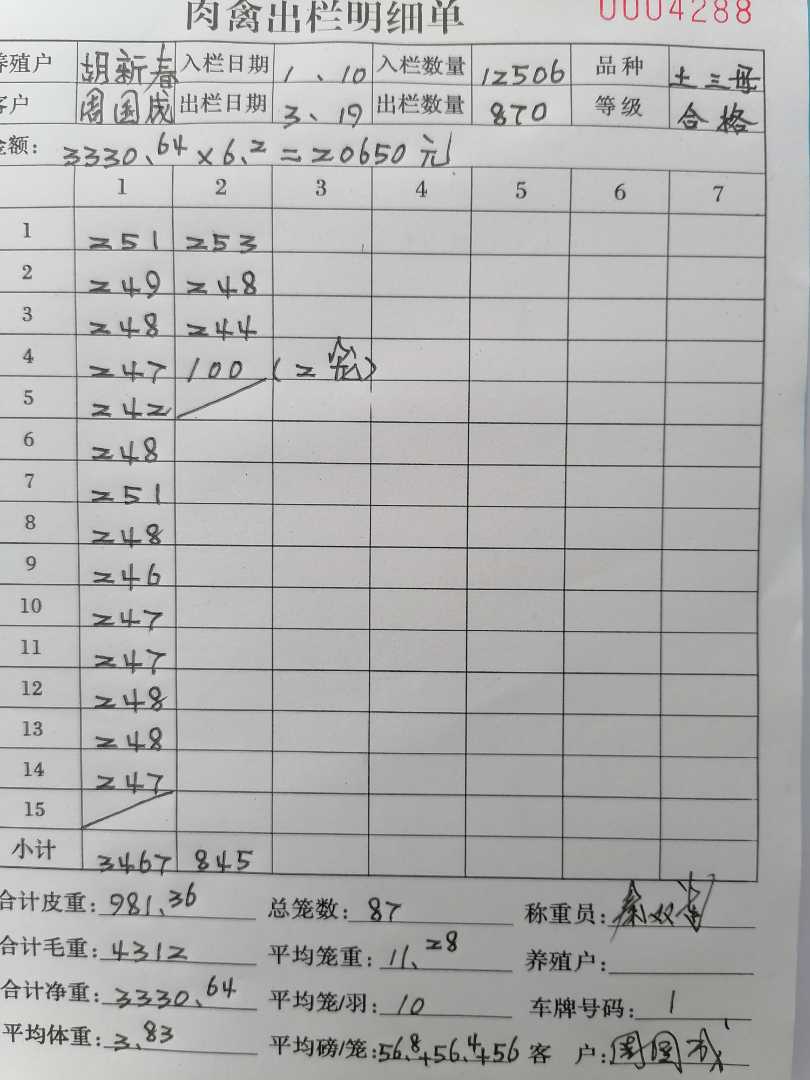 肉禽出栏明细单 0004288
养殖户 胡新春 入栏日期 1、10 入栏数量 12506 品种 土三母
客户 周国成 出栏日期 3、19 出栏数量 870 等级 合格
金额: 3330.64×6.2=20650元
1 2 3 4 5 6 7
1 251 253
2 249 248
3 248 244
4 247 100 (2笼)
5 242
6 248
7 251
8 248
9 246
10 247
11 247
12 248
13 248
14 247
15
小计 3467 845
合计皮重: 981.36 总笼数: 87 称重员: 秦双
合计毛重: 4312 平均笼重: 11.28 养殖户:
合计净重: 3330.64 平均笼/羽: 10 车牌号码: 1
平均体重: 3.83 平均磅/笼: 56.8+56.4+56 客 户: 周国成